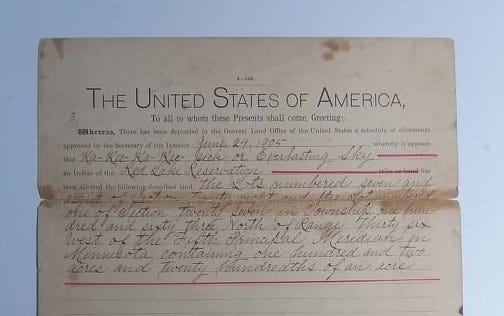 4—180.
THE UNITED STATES OF AMERICA,
To all to whom these Presents shall come, Greeting:
Whereas, There has been deposited in the General Land Office of the United States a schedule of allotments
approved by the Secretary of the Interior June 29, 1905 whereby it appears
that Ka-Kee-Ka-Kee-Sick or Everlasting Sky
an Indian of the Red Lake Reservation tribe or band has
been allotted the following described land, the Lots numbered seven and
eight of Section twenty and the Lot numbered
one of Section twenty seven in Township one hun-
dred and sixty three North of Range thirty six
West of the Fifth Principal Meridian in
Minnesota containing one hundred and two
acres and twenty hundredths of an acre